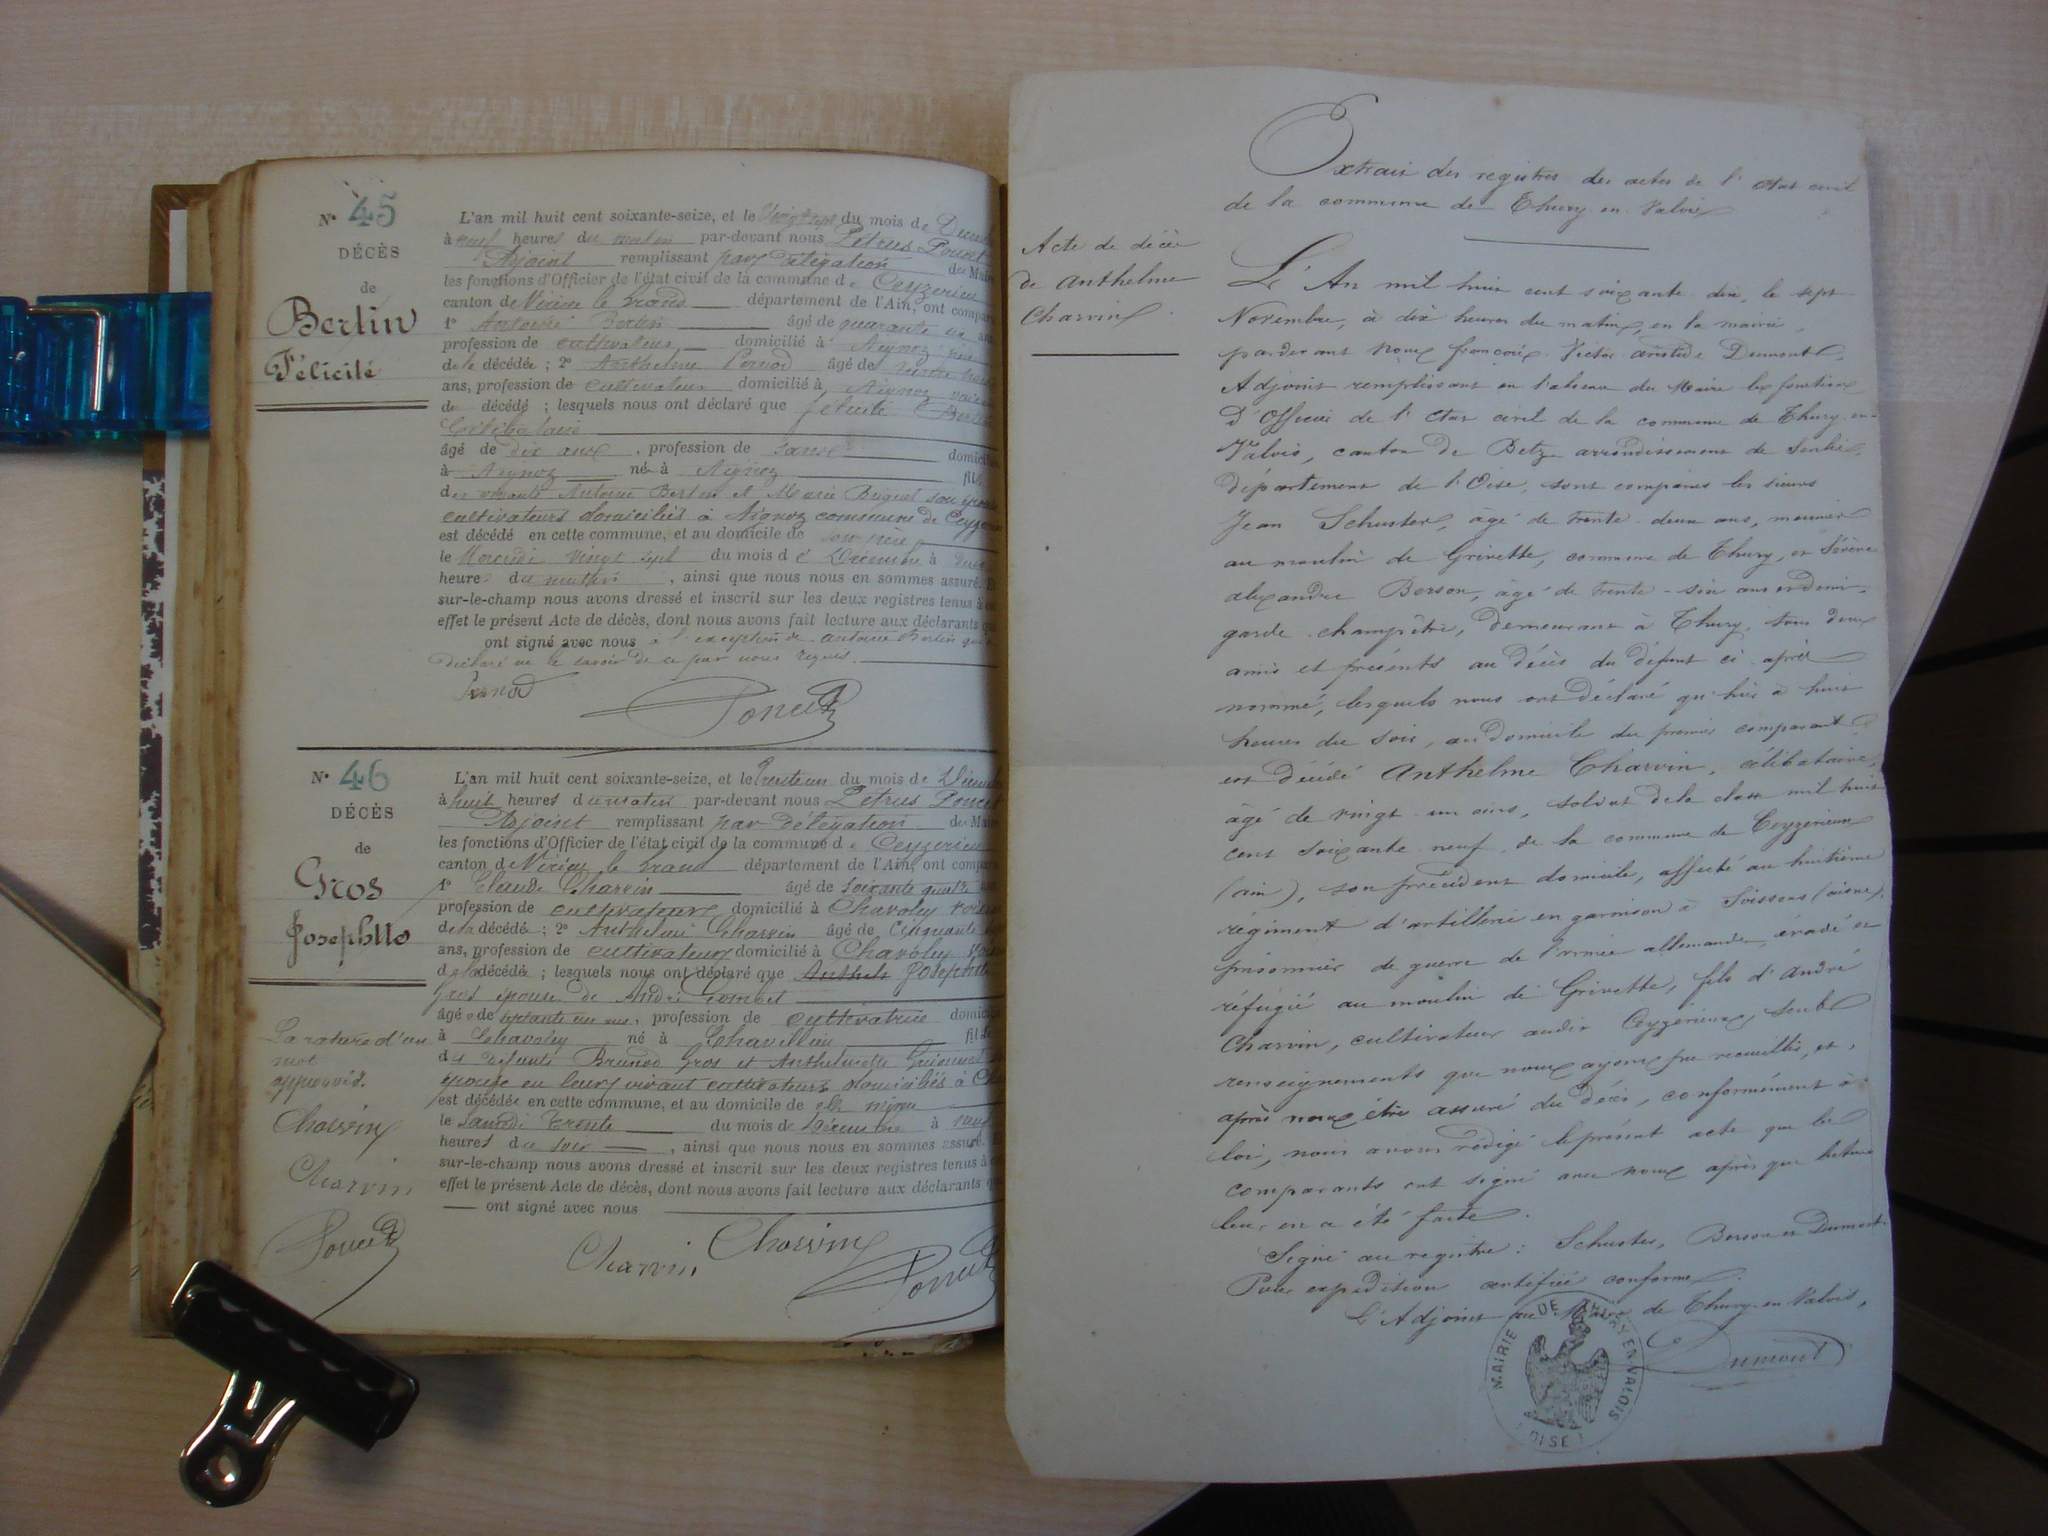 N° 45
DÉCÈS
de
Berlin
Félicité
L'an mil huit cent soixante-seize, et le vingt sept du mois de Décem
à neuf heures du matin par-devant nous Petrus Poncet
Adjoint remplissant par délégation du Maire
les fonctions d'Officier de l'état civil de la commune de Ceyzerieu
canton de Virieu le Grand département de l'Ain, ont compar
1° Antoine Berlin âgé de quarante six ans
profession de cultivateur domicilié à Aignoz
de la décédée ; 2° Anthelme âgé de
ans, profession de cultivateur domicilié à Aignoz voisin
de décédé ; lesquels nous ont déclaré que félicité Berlin
Célibataire
âgé de dix ans, profession de sans domicil
à Aignoz né à Aignoz fil
des mariés Antoine Berlin et Marie Briguet son épouse
cultivateurs domiciliés à Aignoz commune de Ceyze
est décédé en cette commune, et au domicile de son père
le Mercredi vingt sept du mois de Décembre à deux
heures du matin, ainsi que nous nous en sommes assuré. Et
sur-le-champ nous avons dressé et inscrit sur les deux registres tenus à
effet le présent Acte de décès, dont nous avons fait lecture aux déclarants qui
ont signé avec nous à l'exception de Antoine Berlin qui a
déclaré ne le savoir de ce par nous requis.
Poncet
N° 46
DÉCÈS
de
Gros
Josephtte
La rature d'un
mot
approuvée.
Charvin
Charvin
Poncet
L'an mil huit cent soixante-seize, et le trente un du mois de Décem
à huit heures du matin par-devant nous Petrus Poncet
Adjoint remplissant par délégation du Maire
les fonctions d'Officier de l'état civil de la commune de Ceyzerieu
canton de Virieu le Grand département de l'Ain, ont compar
1° Claude Charvin âgé de soixante quatre ans
profession de cultivateur domicilié à Chavoley voisin
de la décédé ; 2° Anthelme Charvin âgé de cinquante
ans, profession de cultivateur domicilié à Chavoley
de la décédée ; lesquels nous ont déclaré que Anthel Josephte
Gros épouse de André
âgée de septante un ans, profession de cultivatrice domici
à Chavoley né à Chavillieu fille
des défunts Brunod Gros et Anthelmette
épouse en leurs vivant cultivateurs domiciliés à Ch
est décédée en cette commune, et au domicile de elle même
le Samedi trente du mois de Décembre à
heures du soir, ainsi que nous nous en sommes assuré.
sur-le-champ nous avons dressé et inscrit sur les deux registres tenus à
effet le présent Acte de décès, dont nous avons fait lecture aux déclarants q
ont signé avec nous
Charvin Charvin
Poncet
Extrait des registres des actes de l'état civil
de la commune de Thury en Valois
Acte de décès
de Anthelme
Charvin.
L'An mil huit cent soixante dix, le sept
Novembre, à dix heures du matin, en la mairie,
pardevant Nous françois Victor aristide Dumont,
Adjoint remplissant en l'absence du Maire les fonctions
D'Officier de l'état civil de la commune de Thury en
Valois, canton de Betz arrondissement de Senlis,
département de l'Oise, sont comparus les sieurs
Jean Schuster, âgé de trente deux ans, meunier
au moulin de Grivette, commune de Thury, et Sévère
alexandre Berson, âgé de trente-six ans et demi,
garde champêtre, demeurant à Thury, tous deux
amis et présents au décès du défunt ci après
nommé, lesquels nous ont déclaré qu'hier à huit
heures du soir, au domicile du premier comparant
est décédé Anthelme Charvin, célibataire,
âgé de vingt un ans, soldat de la classe mil huit
cent soixante neuf, de la commune de Ceyzerieux
(ain), son précédent domicile, affecté au huitième
régiment d'artillerie en garnison à Soissons (aisne),
prisonnier de guerre de l'armée allemande, évadé et
réfugié au moulin de Grivette, fils d'André
Charvin, cultivateur audit Ceyzerieux, seuls
renseignements que nous ayons pu recueillir, et,
après nous être assuré du décès, conformément à la
loi, nous avons rédigé le présent acte que les
comparants ont signé avec nous après que lecture
leur en a été faite.
Signé au registre : Schuster, Berson et Dumont.
Pour expédition certifiée conforme.
L'Adjoint au Maire de Thury-en-Valois,
Dumont
MAIRIE DE THURY EN VALOIS
OISE